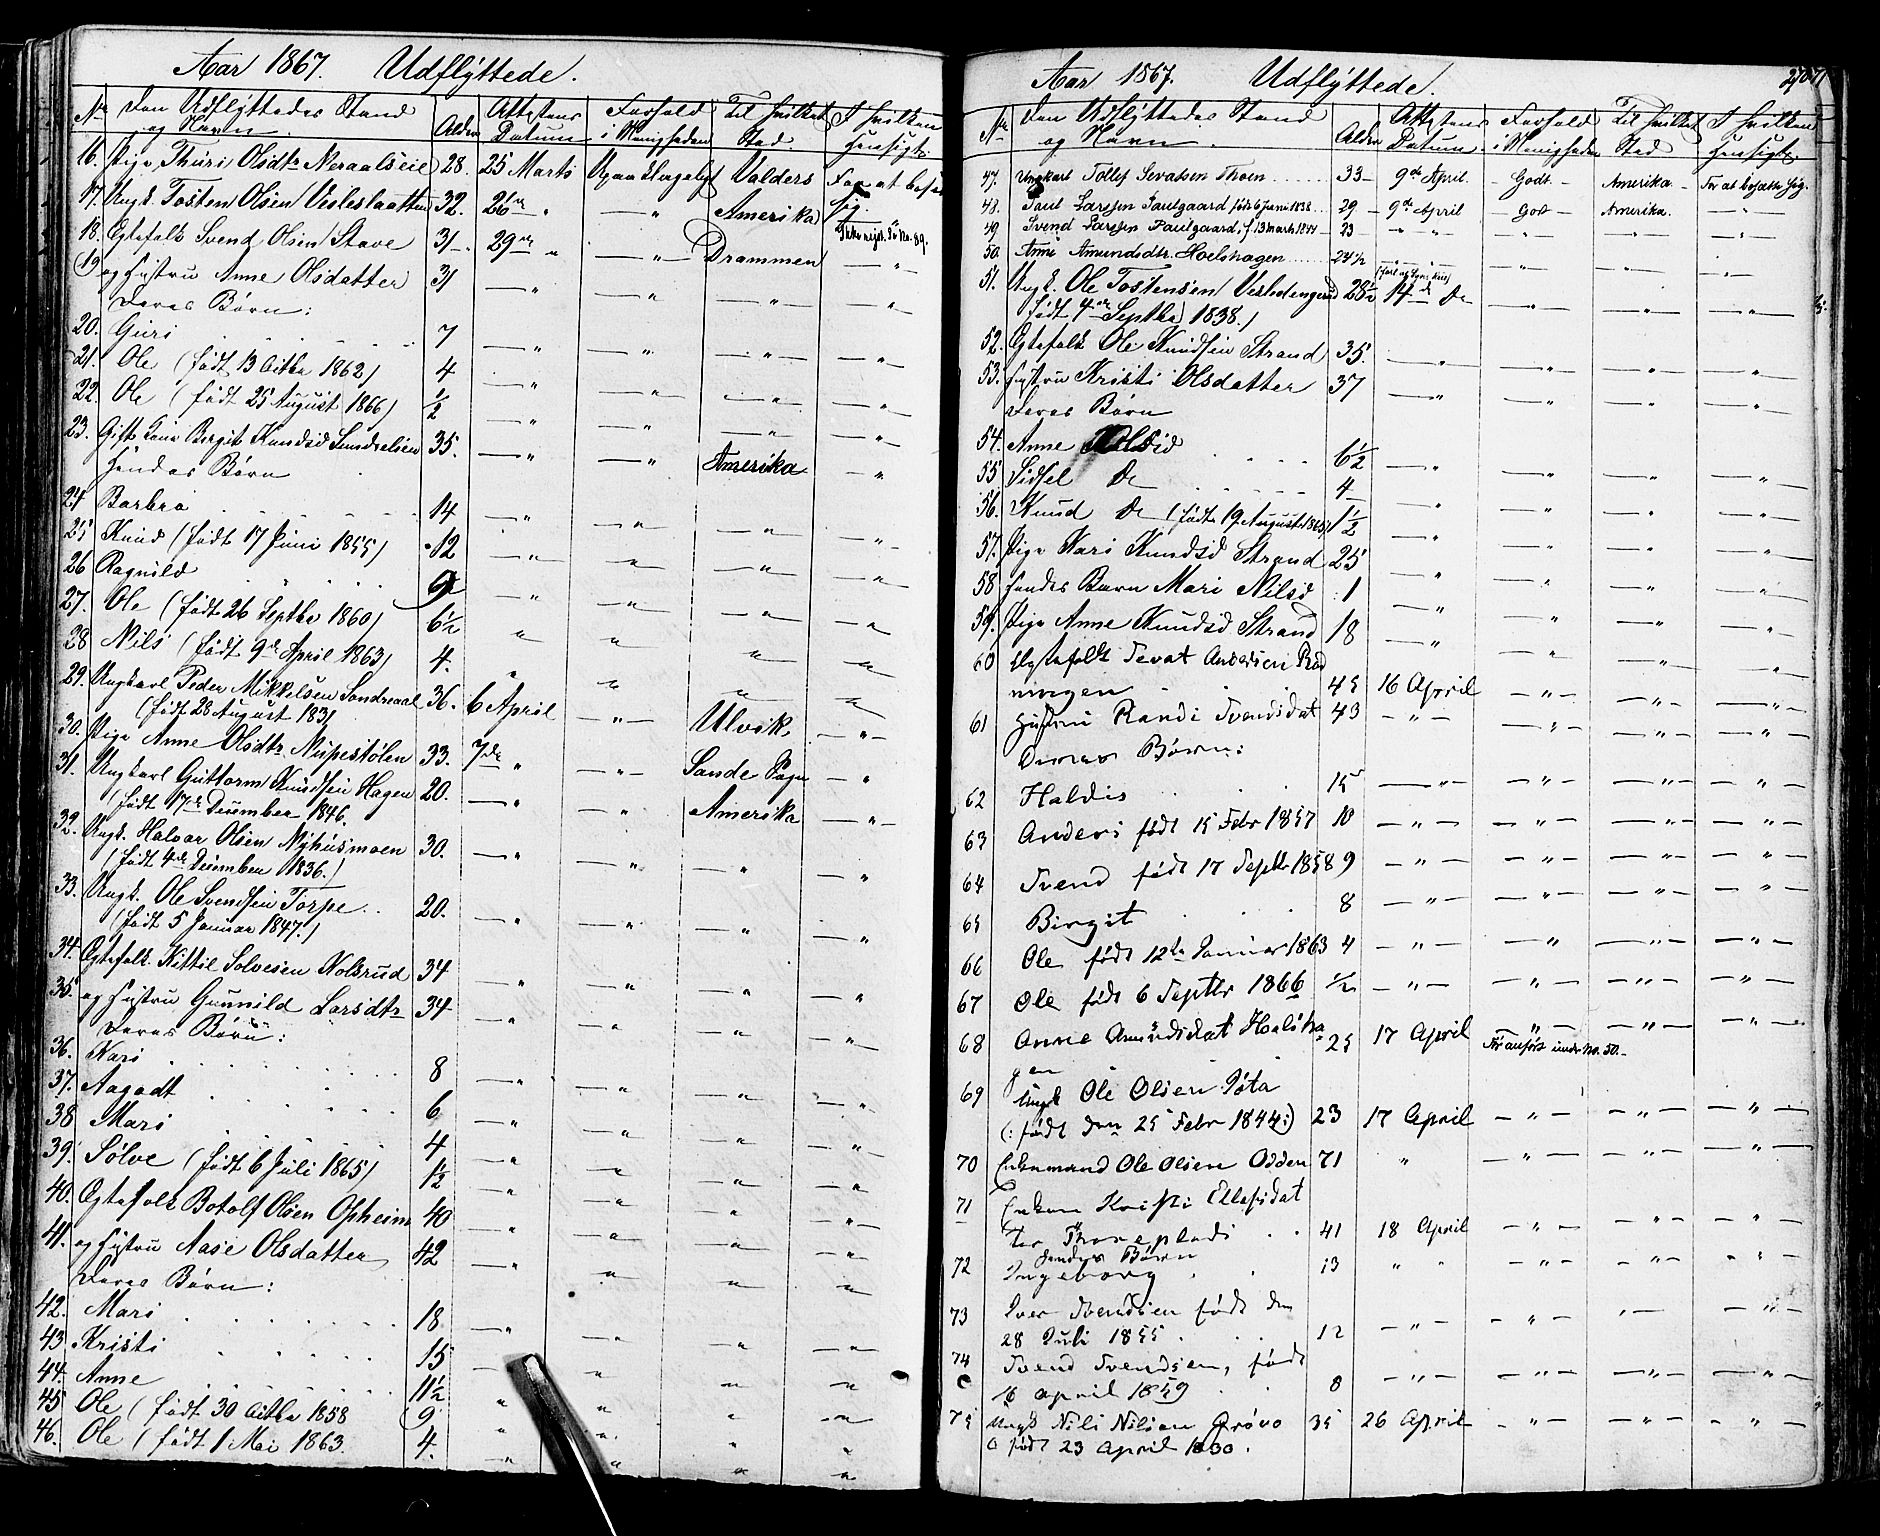 Aar 1867. Udflyttede.
No Den Udflyttedes Stand og Navn. Alder Attestens Datum Forhold i Menigheden Til hvilket Sted I hvilken Hensigt
16. Pige Thuri Olsdtr Neraalseie 28. 25 Marts Valders For at bosætte
17. Ungk. Tosten Olsen Vesleslaatten 32. 26de " — " Amerika sig.
18. Egtefolk Svend Olsen Stave 31. 29de " — " Drammen — " —
19 og Hustru Anne Olsdatter 31 — " — " — " — "
Deres Børn:
20. Guri 7 — " — " — " — "
21. Ole (født 13 Octbr 1862) 4 — " — " — " — "
22. Ole (født 25 August 1866) ½ — " — " — " — "
23. Gift Kone Bergit Knudsd Sundrelien 35. — " — " Amerika — "
Hendes Børn
24 Barbro 14 — " — " — " — "
25 Knud (født 17 Juni 1855) 12 — " — " — " — "
26 Ragnild 9 — " — " — " — "
27. Ole (født 26 Septbr 1860) 6½ " " " "
28 Nils (født 9de April 1863) 4. " " " "
29. Ungkarl Peder Mikkelsen Sondreaal 36. 6 April — " — Ulvik — " —
(født 28 August 1831
30. Pige Anne Olsdtr Nupestølen 33. 7de " — " — Sande Pgn — "
31. Ungkarl Guttorm Knudsen Hagen 20. — " — " Amerika — " —
(født 17de December 1846.
32. Ungk. Halvor Olsen Nyhusmoen 30. — " — " — " — "
(født 4de December 1836.)
33. Ungk. Ole Svendsen Torpe 20. — " — " — " — "
(født 5 Januar 1847.)
34. Egtefolk Kittil Solvesen Nolsrud 34 — " — " — " — "
35. og Hustru Gunnild Larsdtr 34 — " — " — " — "
Deres Børn:
36. Kari 8 — " — " — " — "
37. Aagodt 6 — " — " — " — "
38 Mari 4 — " — " — " — "
39. Sølve (født 6 Juli 1865) 1½ — " — " — " — "
40. Egtefolk Botolf Olsen Opheim 40 — " — " — " — "
41. og Hustru Aase Olsdatter 42 — " — " — " — "
Deres Børn:
42. Mari 18 — " — " — " — "
43 Kristi 15 — " — " — " — "
44. Anne 11½ " " " "
45 Ole (født 30 Octbr 1858 9 " " " "
46. Ole (født 1 Mai 1863. 4. " " " "
Aar 1867. Udflyttede.
No Den Udflyttedes Stand og Navn. Alder Attestens Datum Forhold i Menigheden Til hvilket Sted I hvilken Hensigt
47. Ungkarl Tollef Sevatsen Thoen 33 — 9de April — Godt — Amerika — For at bosætte sig.
48. Paul Larssen Paulgaard født 6 Juni 1838 29 — 9de April — God — Amerika. — " —
49 Svend Larssen Paulgaard, f. 13 marts 1844 23 — " — " — " — "
50. Anne Amundsdtr. Hoelshagen 24½ " — " — " — "
51. Ungk. Ole Tostensen 28½ 14de Do — " — " — "
(født 4de Septbr 1838.)
52. Egtefolk Ole Knudsen Strand 35. — " — " — " — "
53. Hustru Kristi Olsdatter 37 — " — " — " — "
Deres Børn
54. Anne Olsd 6½ — " — " — " — "
55. Sidsel Do 4 — " — " — " — "
56. Knud Do (født 19 August 1865) 1½ — " — " — " — "
57. Pige Kari Knudsd Strand 25 — " — " — " — "
58 Hendes Barn Mari Nilsd 1 — " — " — " — "
59. Pige Anne Knudsd Strand 18 — " — " — " — "
60 Egtefolk Sevat Andersen
ningen 45 16 April — " — " — " — "
61 Hustru Randi Svendsdat 43 — " — " — " — "
Deres Børn:
62 Haldis 15 — " — " — " — "
63 Anders født 15 Febr 1857 10 — " — " — " — "
64 Svend født 17 Septbr 1858 9 — " — " — " — "
65 Birgit 8 — " — " — " — "
66 Ole født 12te Januar 1863 4 — " — " — " — "
67 Ole født 6 Septbr 1866 ½ — " — " — " — "
68 Anne Amundsdat Hoelsha
gen 25 17 April Før anført under No. 50.
69 Ungk Ole Olsen
(: født den 25 Febr 1844:) 23 17 April — " — " — " —
70 Enkemand Ole Olsen Odden 71 " — " — " — " —
71 Enken Kristi Ellefsdat
ter 41 18 April — " — " — " —
Hendes Børn
72 Ingeborg 13 " — " — " — " —
73 Iver Svendsen født den
28 Juli 1855 12 — " — " — " — " —
74 Svend Svendsen, født
16 April 1859 8 — " — " — " — " —
75 Ungk Nils Nilsen Grøvo 35 26 April — " — " — " —
født 23 April 1830.